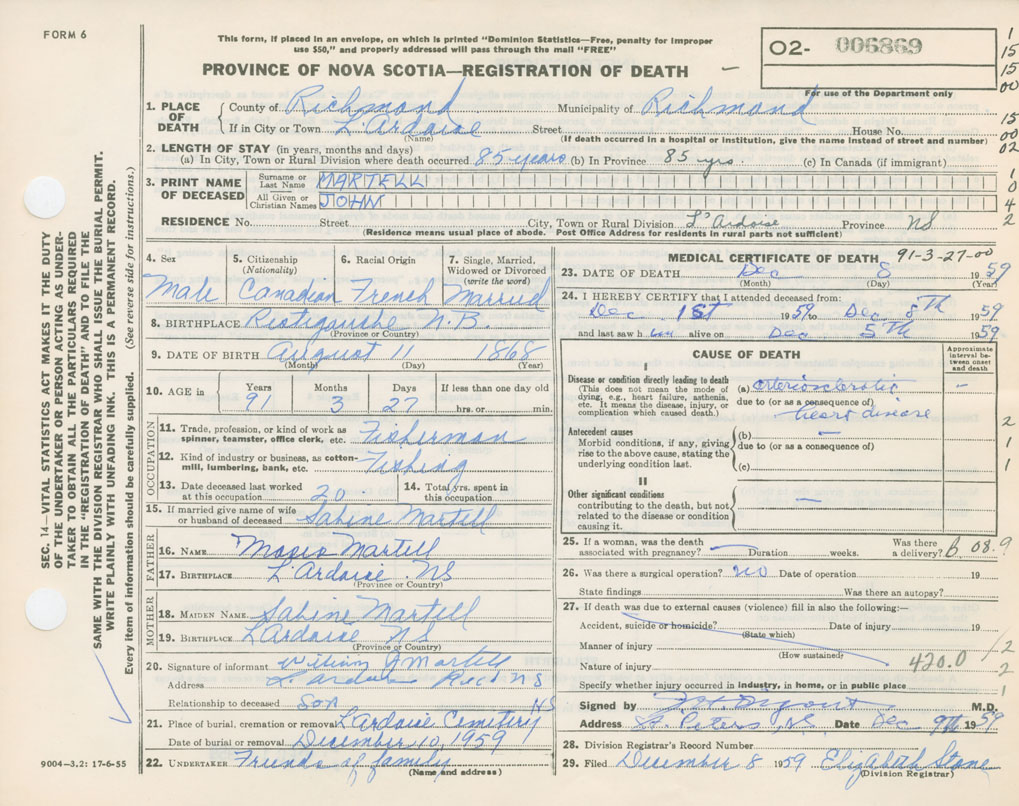 FORM 6
This form, if placed in an envelope, on which is printed "Dominion Statistics—Free, penalty for improper
use $50," and properly addressed will pass through the mail "FREE"
PROVINCE OF NOVA SCOTIA—REGISTRATION OF DEATH
O2- 006869
For use of the Department only
1
15
15
00
15
00
02
1
0
4
2
SEC. 14—VITAL STATISTICS ACT MAKES IT THE DUTY
OF THE UNDERTAKER OR PERSON ACTING AS UNDER-
TAKER TO OBTAIN ALL THE PARTICULARS REQUIRED
IN THE "REGISTRATION OF DEATH" AND TO FILE THE
SAME WITH THE DIVISION REGISTRAR WHO SHALL ISSUE THE BURIAL PERMIT.
WRITE PLAINLY WITH UNFADING INK. THIS IS A PERMANENT RECORD.
Every item of information should be carefully supplied. (See reverse side for instructions.)
1. PLACE OF DEATH County of Richmond Municipality of Richmond
If in City or Town L'Ardoise Street House No.
(Name) (If death occurred in a hospital or institution, give the name instead of street and number)
2. LENGTH OF STAY (in years, months and days)
(a) In City, Town or Rural Division where death occurred 85 years (b) In Province 85 yrs. (c) In Canada (if immigrant)
3. PRINT NAME OF DECEASED Surname or Last Name MARTELL
All Given or Christian Names JOHN
RESIDENCE No. Street City, Town or Rural Division L'Ardoise Province NS
(Residence means usual place of abode. Post Office Address for residents in rural parts not sufficient)
4. Sex Male
5. Citizenship (Nationality) Canadian
6. Racial Origin French
7. Single, Married, Widowed or Divorced (write the word) Married
8. BIRTHPLACE Ristigauche N.B.
(Province or Country)
9. DATE OF BIRTH August 11 1868
(Month) (Day) (Year)
10. AGE in Years 91 Months 3 Days 27 If less than one day old hrs. or min.
OCCUPATION
11. Trade, profession, or kind of work as spinner, teamster, office clerk, etc. Fisherman
12. Kind of industry or business, as cotton-mill, lumbering, bank, etc. Fishing
13. Date deceased last worked at this occupation 20
14. Total yrs. spent in this occupation
15. If married give name of wife or husband of deceased Sabine Martell
FATHER
16. NAME Martell
17. BIRTHPLACE L'Ardoise NS
(Province or Country)
MOTHER
18. MAIDEN NAME Sabine Martell
19. BIRTHPLACE L'Ardoise NS
(Province or Country)
20. Signature of informant William J Martell
Address L'Ardoise NS
Relationship to deceased Son NS
21. Place of burial, cremation or removal L'Ardoise Cemetery
Date of burial or removal December 10, 1959
22. UNDERTAKER Friends of family
(Name and address)
9004—3.2: 17-6-55
MEDICAL CERTIFICATE OF DEATH 91-3-27-00
23. DATE OF DEATH Dec 8 1959
(Month) (Day) (Year)
24. I HEREBY CERTIFY that I attended deceased from:
Dec 1st 1959 to Dec 8th 1959
and last saw him alive on Dec 5th 1959
CAUSE OF DEATH
Approximate interval be-tween onset and death
I
Disease or condition directly leading to death
(This does not mean the mode of dying, e.g., heart failure, asthenia, etc. It means the disease, injury, or complication which caused death.)
(a) arteriosclerotic —
due to (or as a consequence of)
heart disease
Antecedent causes
Morbid conditions, if any, giving rise to the above cause, stating the underlying condition last.
(b) —
due to (or as a consequence of)
(c)
2
1
1
II
Other significant conditions
contributing to the death, but not related to the disease or condition causing it.
—
25. If a woman, was the death associated with pregnancy? — Duration weeks. Was there a delivery? B 08.9
26. Was there a surgical operation? no Date of operation 19
State findings Was there an autopsy?
27. If death was due to external causes (violence) fill in also the following:—
Accident, suicide or homicide? Date of injury 19
(State which)
Manner of injury
(How sustained)
Nature of injury 420.0
2
2
1
Specify whether injury occurred in industry, in home, or in public place
Signed by M.D.
Address St. Peters, N.S. Date Dec 9th 1959
28. Division Registrar's Record Number
29. Filed December 8 1959 Elizabeth Stone
(Division Registrar)